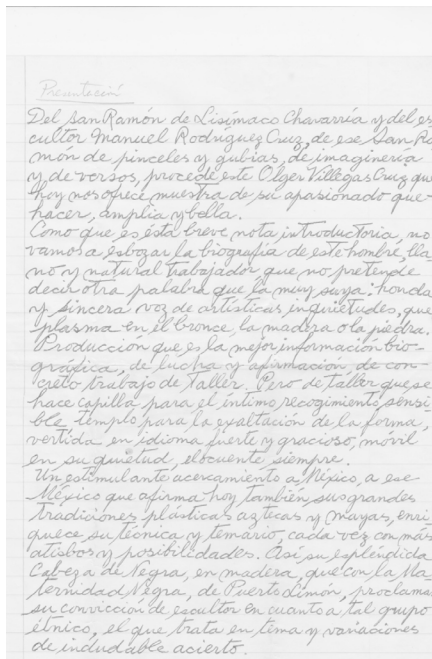 Presentación
Del San Ramón de Lisímaco Chavarría y del es
cultor Manuel Rodríguez Cruz, de ese San Ra
món de pinceles y gubias, de imaginería
y de versos, procede este Olger Villegas Cruz que
hoy nos ofrece muestra de su apasionado que-
hacer, amplia y bella.
Como que es ésta breve nota introductoria, no
vamos a esbozar la biografía de este hombre, lla
no y natural trabajador que no pretende
decir otra palabra que la muy suya: honda
y sincera voz de artísticas inquietudes, que
plasma en el bronce, la madera o la piedra.
Producción que es la mejor información bio-
gráfica, de lucha y afirmación, de con-
creto trabajo de taller. Pero de taller que se
hace capilla para el íntimo recogimiento, sensi
ble templo para la exaltación de la forma,
vertida en idioma fuerte y gracioso, móvil
en su quietud, elocuente siempre.
Un estimulante acercamiento a México, a ese
México que afirma hoy también, sus grandes
tradiciones plásticas aztecas y mayas, enri
quece su técnica y temario, cada vez con más
atisbos y posibilidades. Así, su espléndida
Cabeza de Negra, en madera, que con la Ma
ternidad Negra, de Puerto Limón, proclama
su convicción de escultor en cuanto a tal grupo
étnico, el que trata en tema y variaciones
de indudable acierto.